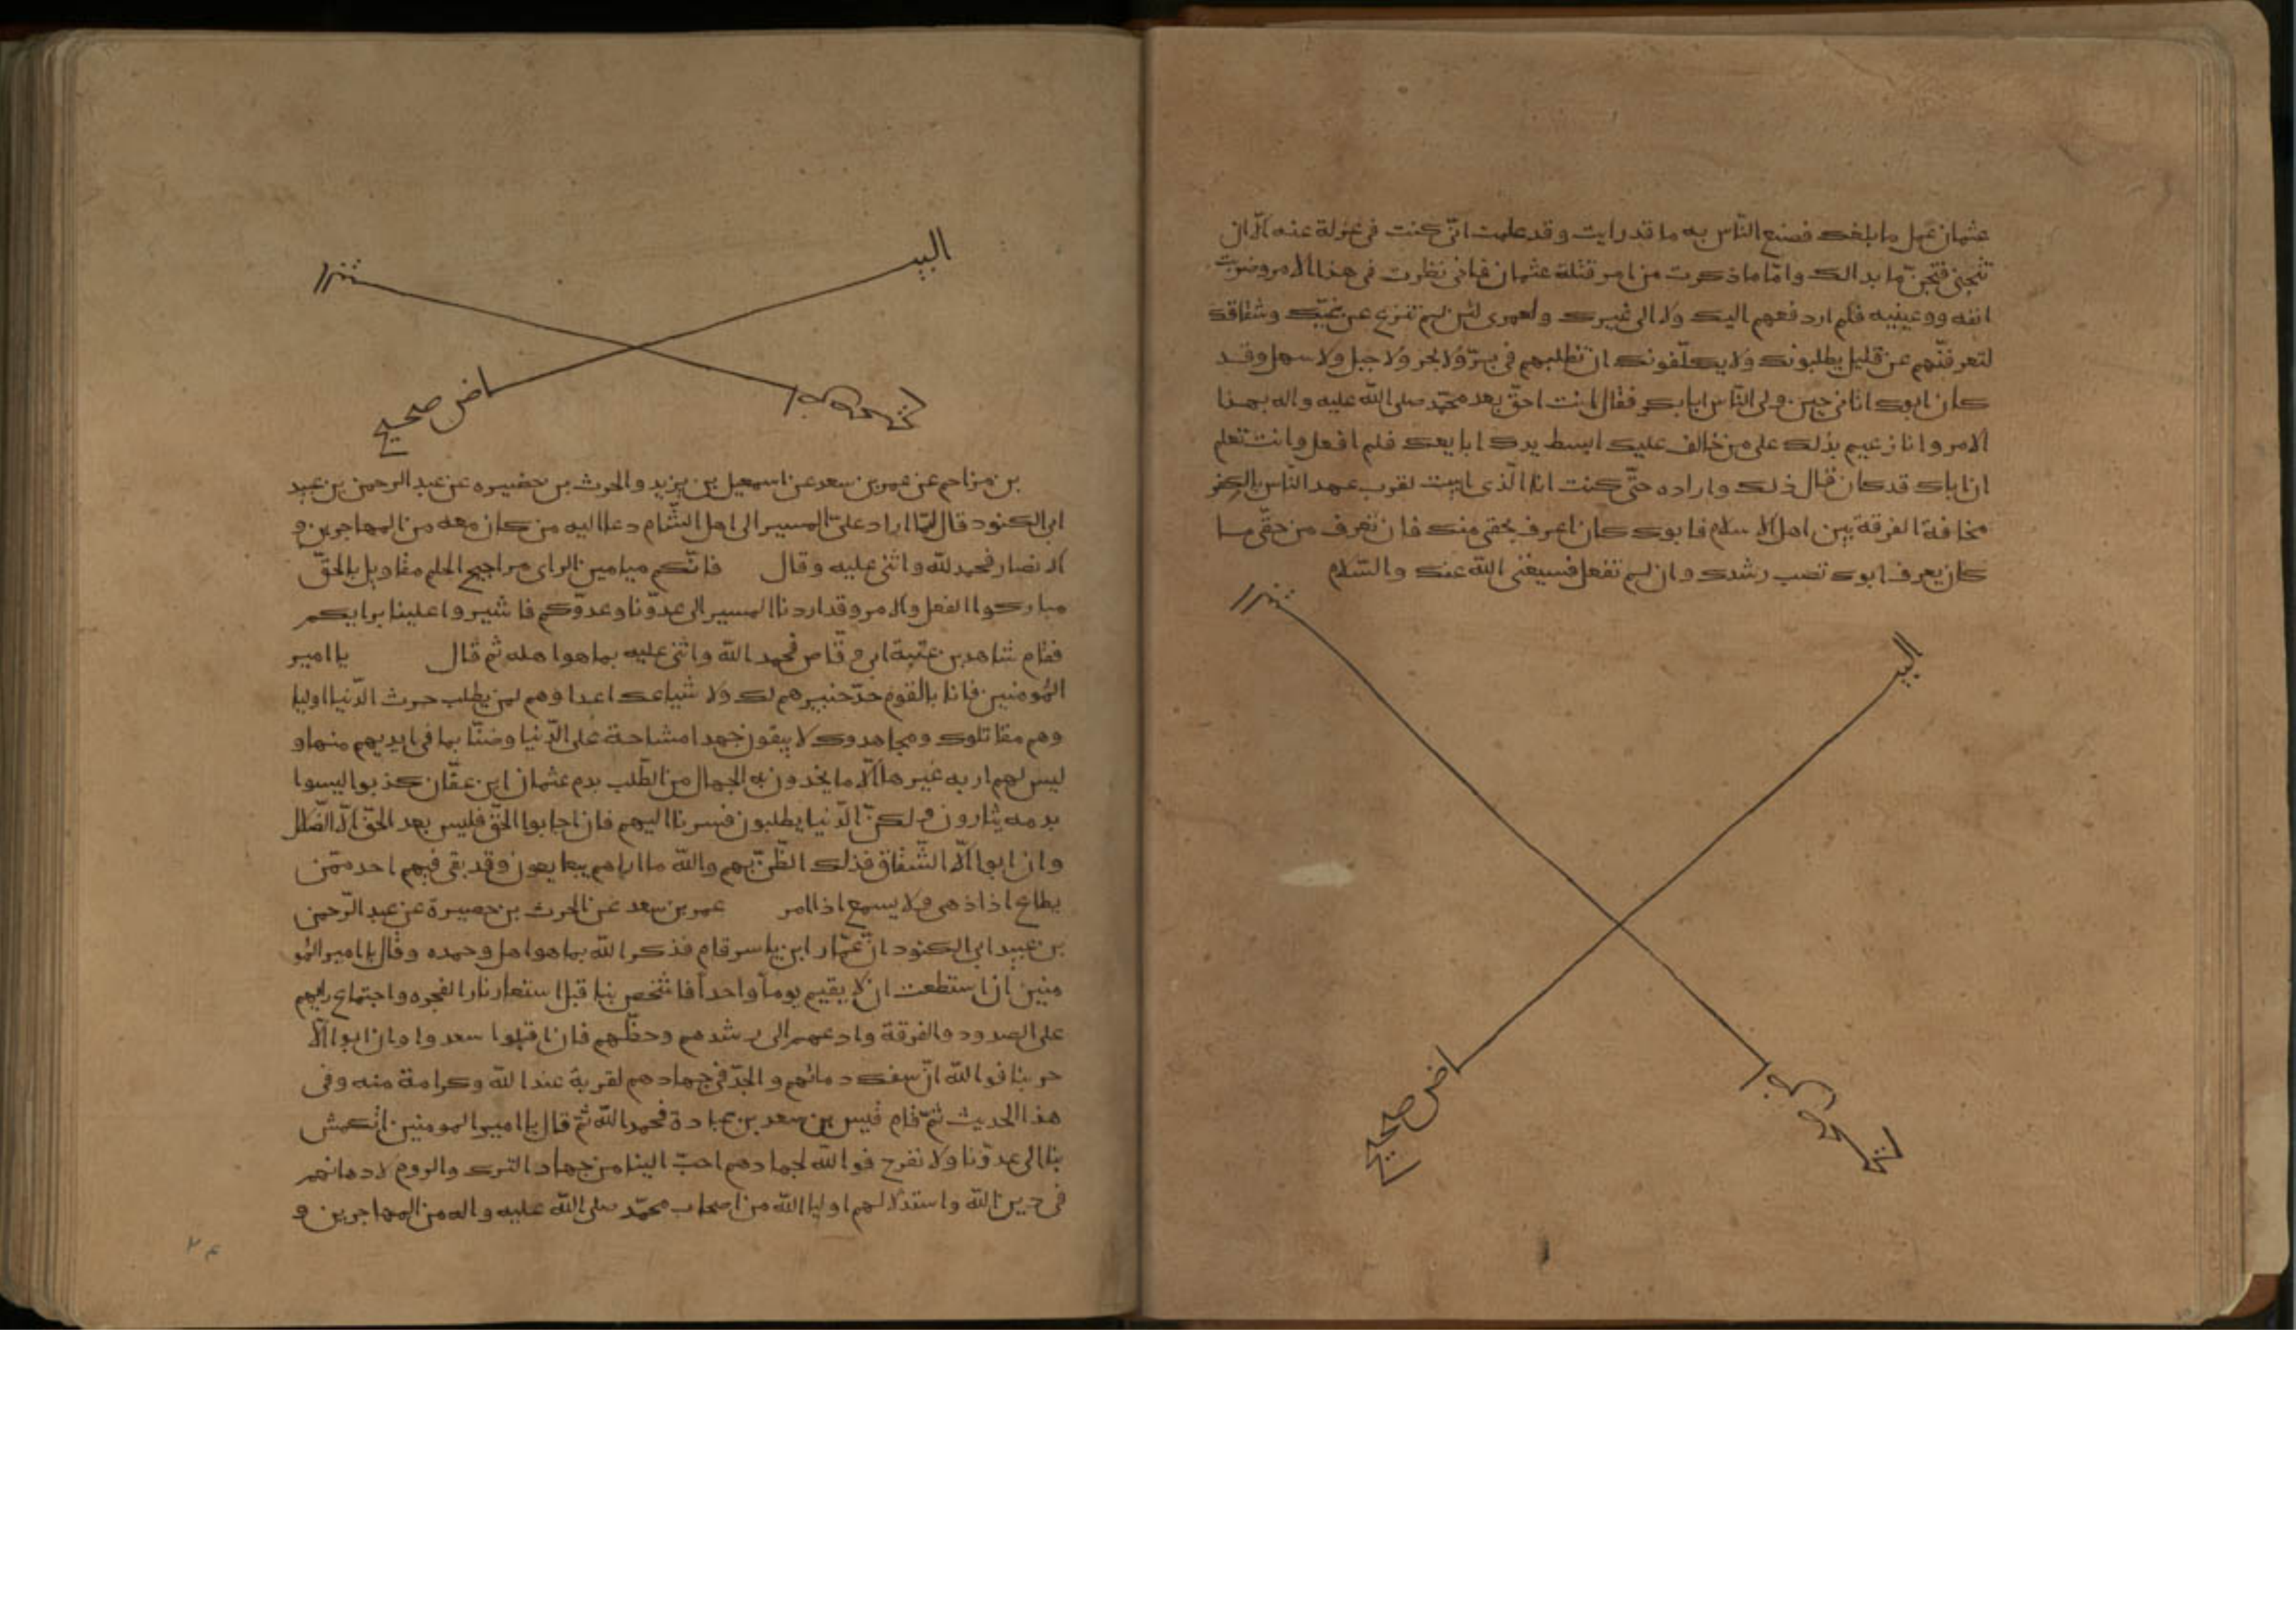 عثمان عمل ما بلغك فصنع الناس به ما قد رايت وقد علمت انى كنت فى عزلة عنه الّا ان
تتجنى فتجنّ ما بدا لك وامّا ما ذكرت من امر قتلة عثمان فانى نظرت فى هذا الامر وضربت
انفه وعينيه فلم ار دفعهم اليك ولا الى غيرك ولعمرى لئن لم تنزع عن غيّك وشقاقك
لتعرفنّهم عن قليل يطلبونك ولا يكلّفونك ان تطلبهم فى برّ ولا بحر ولا جبل ولا سهل وقد
كان ابوك اتانى حين ولى الناس ابا بكر فقال انت احقّ بعد محمّد صلى الله عليه واله بهذا
الامر وانا زعيم بذلك على من خالف عليك ابسط يدك ابايعك فلم افعل وانت تعلم
ان اباك قد كان قال ذلك واراده حتّى كنت انا الّذى ابيت لقرب عهد النّاس بالكفر
مخافة الفرقة بين اهل الاسلام فابوك كان اعرف بحقى منك فان تعرف من حقّى ما
كان يعرف ابوك تصب رشدك وان لم تفعل فسيغنى الله عنك والسّلام
البيـ
ـاض صحيح
البيـ
ـاض صحيح
بن مزاحم عن عمر بن سعد عن اسمعيل بن يزيد والحرث بن حضيره عن عبد الرحمن بن عبيد
ابى الكنود قال لمّا اراد علىّ المسير الى اهل الشّام دعا اليه من كان معه من المهاجرين و
الانصار فحمد لله واثنى عليه وقال فانّكم ميامين الراى مراجيح الحلم مقاويل بالحقّ
مباركوا الفعل والامر وقد اردنا المسير الى عدوّنا وعدوّكم فاشيروا علينا برايكم
فقام شاهد بن عتبة ابى وقاص فحمد الله واثنى عليه بما هو اهله ثم قال يا امير
المؤمنين فانا بالقوم حدّ خبير هم لك ولاشياعك اعدا وهم لمن يطلب حرث الدّنيا اوليا
وهم مقاتلوك ومجاهدوك لا يبقون جهدا مشاحة على الدّنيا وضنّا بما فى ايديهم منها و
ليس لهم اربه غيرها الّا ما يخدون به الجهال من الطّلب بدم عثمان ابن عفّان كذبوا ليسوا
بدمه يثارون ولكنّ الدّنيا يطلبون فسر بنا اليهم فان اجابوا الحقّ فليس بعد الحقّ الّا الضّلال
وان ابوا الّا الشّقاق فذلك الظّنّ بهم والله ما اراهم يبايعون وقد بقى فيهم احد ممّن
يطاع اذا ذهى ولا يسمع اذا امر عمر بن سعد عن الحرث بن حصيرة عن عبد الرّحمن
بن عبيد ابى الكنود انّ عمّار ابن ياسر قام فذكر الله بما هو اهل وحمده وقال يا امير المو
منين ان استطعت ان لا يقيم يوماً واحداً فاشخص بنا قبل استعار نار الفجره واجتماع رايهم
على الصدود والفرقة وادعهم الى رشدهم وحظّهم فان قبلوا سعدوا وان ابوا الّا
حربنا فوالله انّ سفك دمائهم والجدّ فى جهادهم لقربة عند الله وكرامة منه وفى
هذا الحديث ثمّ قام قيس بن سعد بن عبادة فحمد الله ثمّ قال يا امير المومنين انكمش
بنا الى عدوّنا ولا نفرح فوالله لجهادهم احبّ الينا من جهاد الترك والروم لادهانهم
فى دين الله واستذلالهم اوليا الله من اصحاب محمّد صلى الله عليه واله من المهاجرين و